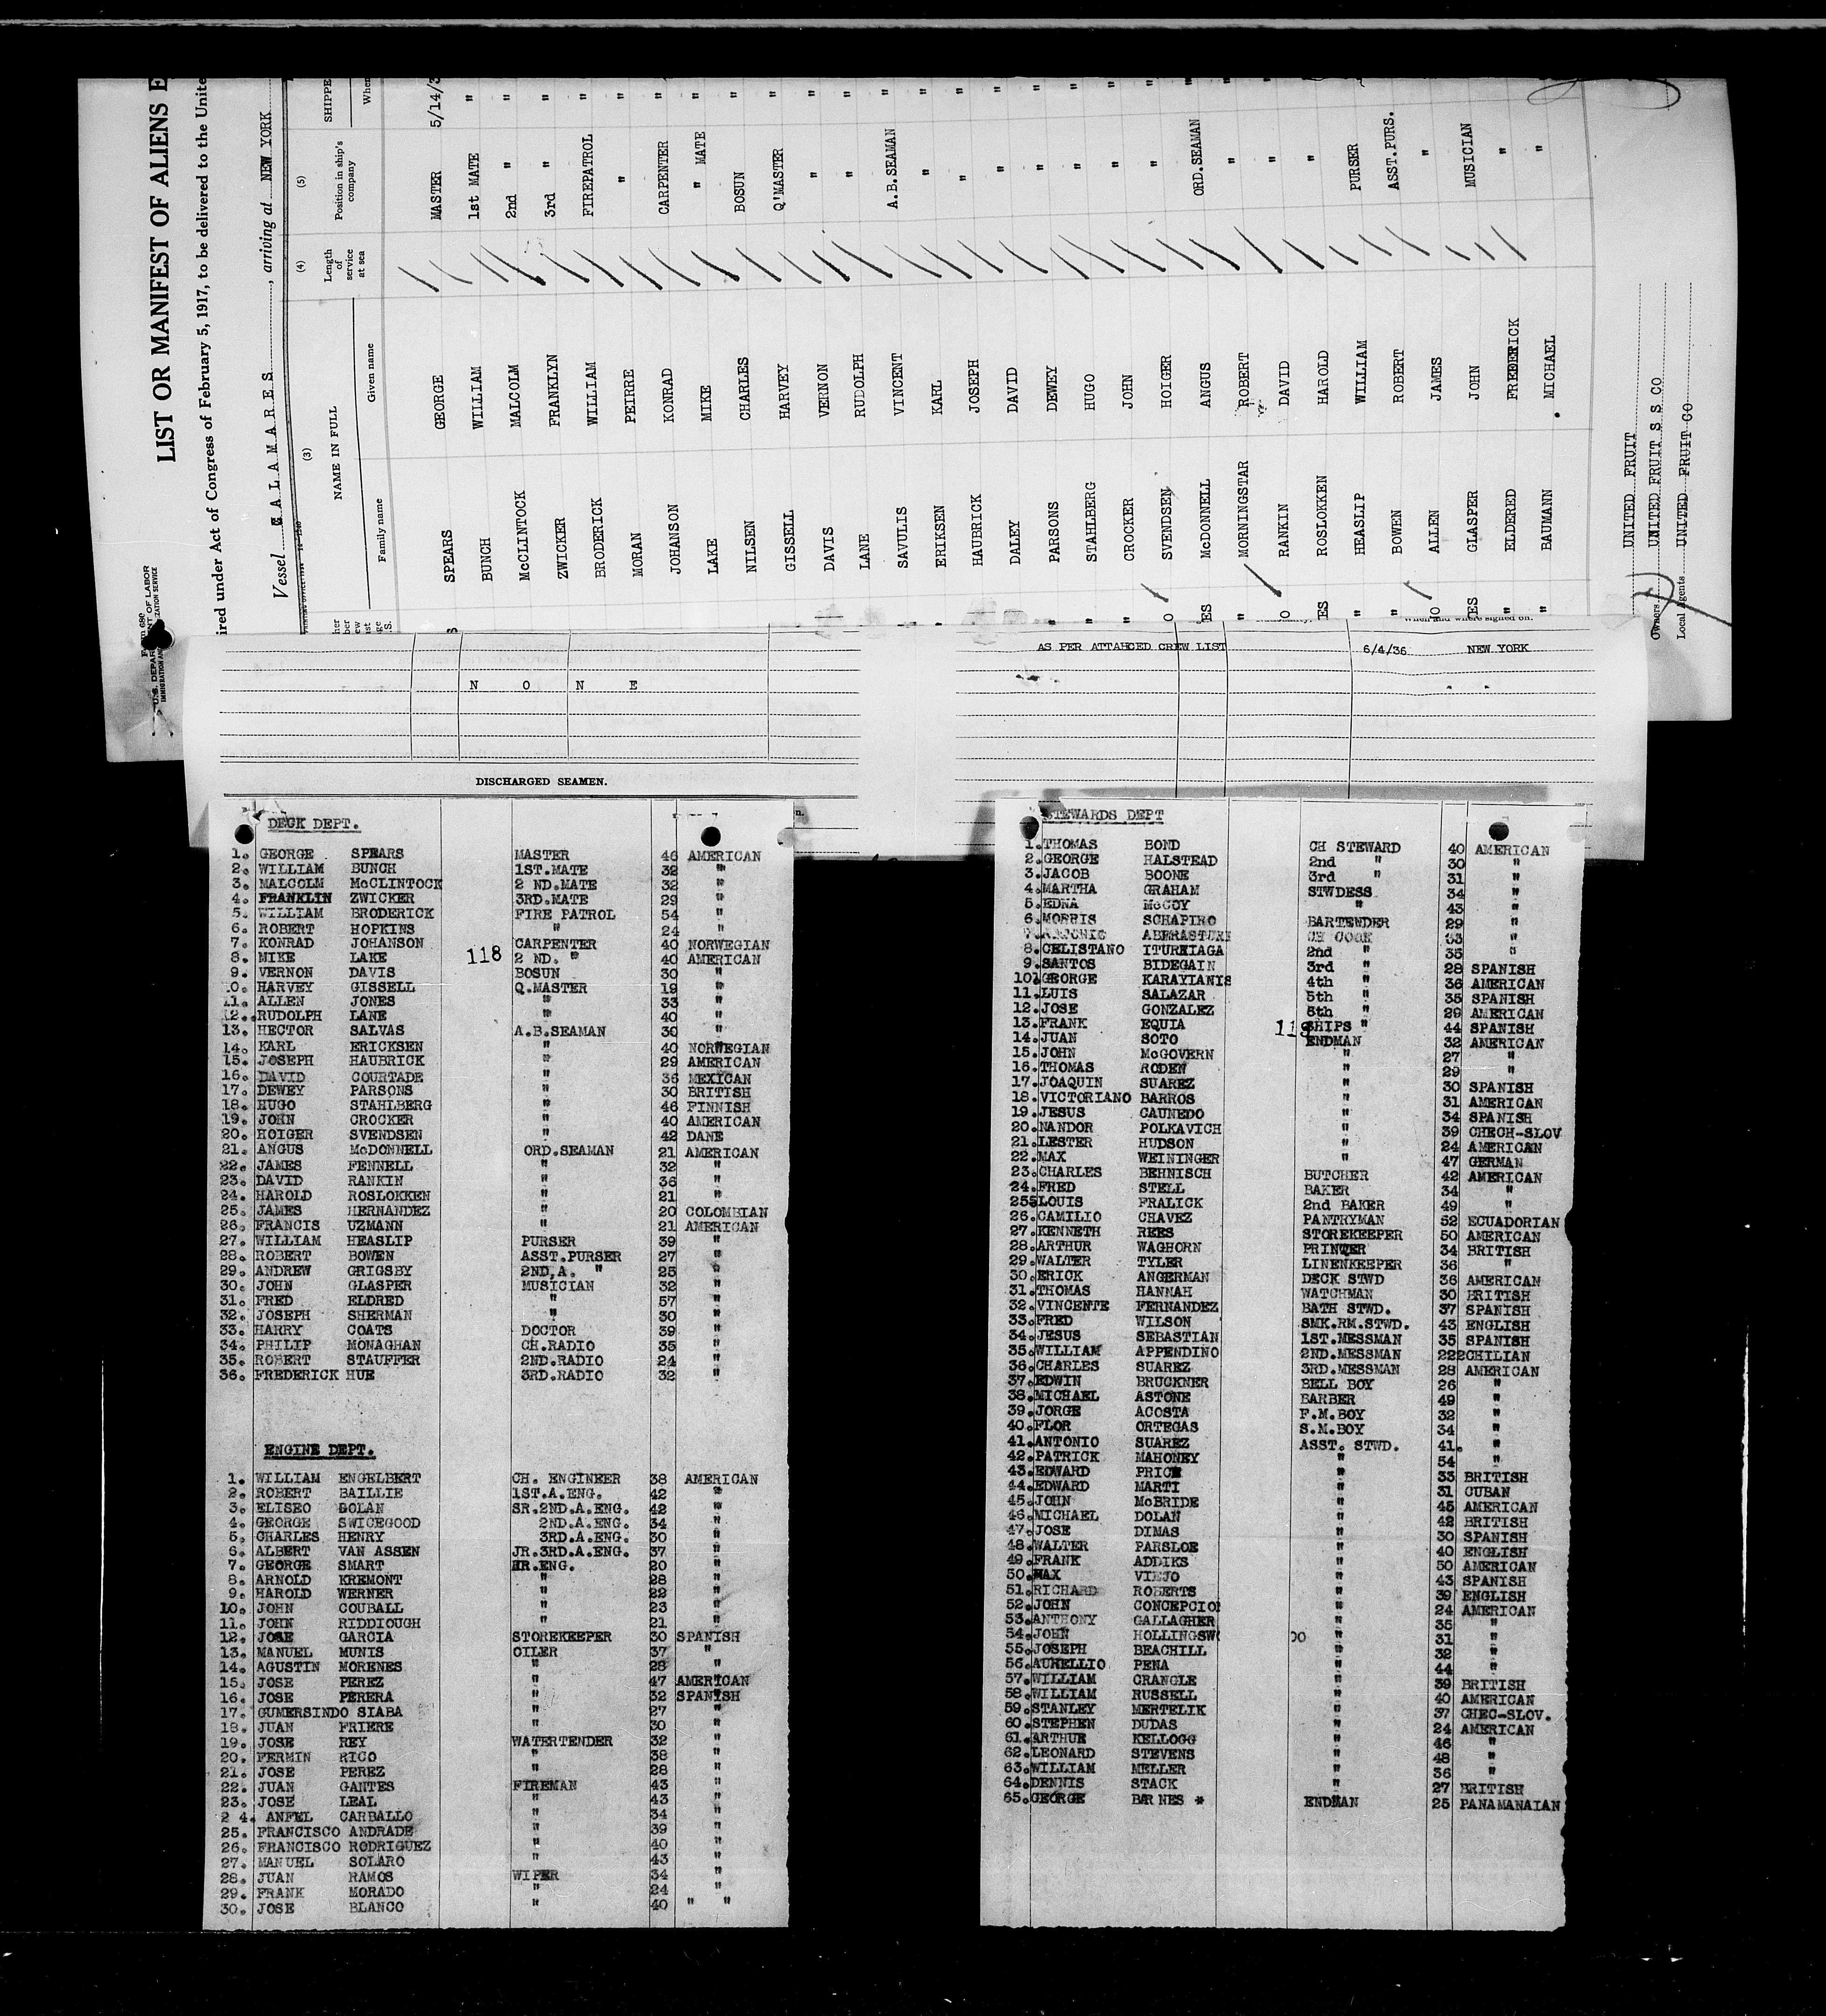 LIST OR MANIFEST OF ALIENS E
ired under Act of Congress of February 5, 1917, to be delivered to the Unite
Vessel CALAMARES, arriving at NEW YORK
Form 680
U.S. DEPARTMENT OF LABOR
IMMIGRATION AND NATURALIZATION SERVICE
(3) (4) (5)
NAME IN FULL Length of service at sea Position in ship's company SHIPPE
Family name Given name Whe
SPEARS GEORGE MASTER 5/14/3
BUNCH WILLIAM 1st MATE "
McCLINTOCK MALCOLM 2nd " "
ZWICKER FRANKLYN 3rd " "
BRODERICK WILLIAM FIREPATROL "
MORAN PEIRRE " "
JOHANSON KONRAD CARPENTER "
LAKE MIKE " MATE "
NILSEN CHARLES BOSUN "
GISSELL HARVEY Q'MASTER "
DAVIS VERNON " "
LANE RUDOLPH " "
SAVULIS VINCENT A.B.SEAMAN "
ERIKSEN KARL " "
HAUBRICK JOSEPH " "
DALEY DAVID " "
PARSONS DEWEY " "
STAHLBERG HUGO " "
CROCKER JOHN " "
SVENDSEN HOIGER " "
McDONNELL ANGUS ORD.SEAMAN "
MORNINGSTAR ROBERT " "
RANKIN DAVID " "
ROSLOKKEN HAROLD "
HEASLIP WILLIAM PURSER
BOWEN ROBERT ASST.PURS.
ALLEN JAMES "
GLASPER JOHN MUSICIAN
ELDERED FREDERICK "
BAUMANN MICHAEL "
UNITED FRUIT
Owners UNITED FRUIT S S CO
Local Agents UNITED FRUIT CO
When and where signed on.
N O N E
AS PER ATTAHCED CREW LIST 6/4/36 NEW YORK
DISCHARGED SEAMEN.
DECK DEPT.
1. GEORGE SPEARS MASTER 46 AMERICAN
2. WILLIAM BUNCH 1ST.MATE 32 "
3. MALCOLM McCLINTOCK 2 ND.MATE 32 "
4. FRANKLIN ZWICKER 3RD.MATE 29 "
5. WILLIAM BRODERICK FIRE PATROL 54 "
6. ROBERT HOPKINS " 24 "
7. KONRAD JOHANSON CARPENTER 40 NORWEGIAN
118
8. MIKE LAKE 2 ND. " 40 AMERICAN
9. VERNON DAVIS BOSUN 30 "
10. HARVEY GISSELL Q.MASTER 19 "
11. ALLEN JONES " 33 "
12. RUDOLPH LANE " 40 "
13. HECTOR SALVAS A.B.SEAMAN 30 "
14. KARL ERICKSEN " 40 NORWEGIAN
15. JOSEPH HAUBRICK " 29 AMERICAN
16. DAVID COURTADE " 36 MEXICAN
17. DEWEY PARSONS " 30 BRITISH
18. HUGO STAHLBERG " 46 FINNISH
19. JOHN CROCKER " 40 AMERICAN
20. HOIGER SVENDSEN " 42 DANE
21. ANGUS McDONNELL ORD.SEAMAN 21 AMERICAN
22. JAMES FENNELL " 32 "
23. DAVID RANKIN " 36 "
24. HAROLD ROSLOKKEN " 21 "
25. JAMES HERNANDEZ " 20 COLOMBIAN
26. FRANCIS UZMANN " 21 AMERICAN
27. WILLIAM HEASLIP PURSER 39 "
28. ROBERT BOWEN ASST.PURSER 27 "
29. ANDREW GRIGSBY 2ND,A. " 25 "
30. JOHN GLASPER MUSICIAN 32 "
31. FRED ELDRED " 57 "
32. JOSEPH SHERMAN " 30 "
33. HARRY COATS DOCTOR 39 "
34. PHILIP MONAGHAN CH.RADIO 35 "
35. ROBERT STAUFFER 2ND.RADIO 24 "
36. FREDERICK HUE 3RD.RADIO 32 "
ENGINE DEPT.
1. WILLIAM ENGELBERT CH. ENGINEER 38 AMERICAN
2. ROBERT BAILLIE 1ST.A.ENG. 42 "
3. ELISEO DOLAN SR.2ND.A.ENG. 42 "
4. GEORGE SWICEGOOD 2ND.A.ENG. 34 "
5. CHARLES HENRY 3RD.A.ENG. 30 "
6. ALBERT VAN ASSEN JR.3RD.A.ENG. 37 "
7. GEORGE SMART HR.ENG. 20 "
8. ARNOLD KREMONT " 28 "
9. HAROLD WERNER " 22 "
10. JOHN COUBALL " 23 "
11. JOHN RIDDIOUGH " 21 "
12. JOSE GARCIA STOREKEEPER 30 SPANISH
13. MANUEL MUNIS OILER 37 "
14. AGUSTIN MORENES " 28 "
15. JOSE PEREZ " 47 AMERICAN
16. JOSE PERERA " 32 SPANISH
17. GUMERSINDO SIABA " 27 "
18. JUAN FRIERE " 30 "
19. JOSE REY WATERTENDER 32 "
20. FERMIN RICO " 38 "
21. JOSE PEREZ " 28 "
22. JUAN GANTES FIREMAN 43 "
23. JOSE LEAL " 43 "
2 4. ANFEL CARBALLO " 34 "
25. FRANCISCO ANDRADE " 39 "
26. FRANCISCO RODRIGUEZ " 40 "
27. MANUEL SOLARO " 43 "
28. JUAN RAMOS WIPER 34 "
29. FRANK MORADO " 24 "
30. JOSE BLANCO " 40 " "
STEWARDS DEPT
1. THOMAS BOND CH STEWARD 40 AMERICAN
2. GEORGE HALSTEAD 2nd " 30 "
3. JACOB BOONE 3rd " 31 "
4. MARTHA GRAHAM STWDESS 34 "
5. EDNA McCOY " 43 "
6. MORRIS SCHAPIRO BARTENDER 29 "
7. ANTONIO ABERASTURI CH COOK 33 "
8. CELISTANO ITURRIAGA 2nd " 35 "
9. SANTOS BIDEGAIN 3rd " 28 SPANISH
10. GEORGE KARAYIANIS 4th " 36 AMERICAN
11. LUIS SALAZAR 5th " 35 SPANISH
12. JOSE GONZALEZ 6th " 29 AMERICAN
13. FRANK EQUIA SHIPS " 44 SPANISH
118
14. JUAN SOTO ENDMAN 32 AMERICAN
15. JOHN McGOVERN " 27 "
16. THOMAS RODEN " 29 "
17. JOAQUIN SUAREZ " 30 SPANISH
18. VICTORIANO BARROS " 31 AMERICAN
19. JESUS CAUNEDO " 34 SPANISH
20. NANDOR POLKAVICH " 39 CHECH-SLOV
21. LESTER HUDSON " 24 AMERICAN
22. MAX WEININGER " 47 GERMAN
23. CHARLES BEHNISCH BUTCHER 42 AMERICAN
24. FRED STELL BAKER 34 "
255 LOUIS FRALICK 2nd BAKER 49 "
26. CAMILIO CHAVEZ PANTRYMAN 52 ECUADORIAN
27. KENNETH REES STOREKEEPER 50 AMERICAN
28. ARTHUR WAGHORN PRINTER 34 BRITISH
29. WALTER TYLER LINENKEEPER 36 "
30. ERICK ANGERMAN DECK STWD 36 AMERICAN
31. THOMAS HANNAH WATCHMAN 30 BRITISH
32. VINCENTE FERNANDEZ BATH STWD. 37 SPANISH
33. FRED WILSON SMK.RM.STWD. 43 ENGLISH
34. JESUS SEBASTIAN 1ST.MESSMAN 35 SPANISH
35. WILLIAM APPENDINO 2ND.MESSMAN 222 CHILIAN
36. CHARLES SUAREZ 3RD.MESSMAN 28 AMERICAN
37. EDWIN BRUCKNER BELL BOY 26 "
38. MICHAEL ASTONE BARBER 49 "
39. JORGE ACOSTA F.M.BOY 32 "
40. FLOR ORTEGAS S.M.BOY 34 "
41. ANTONIO SUAREZ ASST. STWD. 41. "
42. PATRICK MAHONEY " 54 "
43. EDWARD PRICE " 33 BRITISH
44. EDWARD MARTI " 31 CUBAN
45. JOHN McBRIDE " 45 AMERICAN
46. MICHAEL DOLAN " 42 BRITISH
47. JOSE DIMAS " 30 SPANISH
48. WALTER PARSLOE " 40 ENGLISH
49. FRANK ADDIKS " 50 AMERICAN
50. MAX VIEJO " 43 SPANISH
51. RICHARD ROBERTS " 39 ENGLISH
52. JOHN CONCEPCIO " 24 AMERICAN
53. ANTHONY GALLAGHER " 35 "
54. JOHN HOLLINGSW " 31 "
55. JOSEPH BEACHILL " 32 "
56. AURELLIO PENA " 44 "
57. WILLIAM CRANGLE " 39 BRITISH
58. WILLIAM RUSSELL " 40 AMERICAN
59. STANLEY MERTELIK " 37 CHEC-SLOV.
60. STEPHEN DUDAS " 24 AMERICAN
61. ARTHUR KELLOGG " 46 "
62. LEONARD STEVENS " 48 "
63. WILLIAM MELLER " 36 "
64. DENNIS STACK " 27 BRITISH
65. GEORGE BARNES * ENDMAN 25 PANAMANAIAN